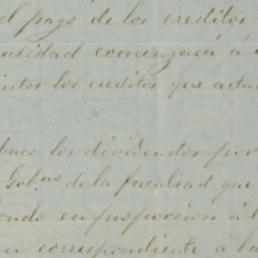 el pago de los creditos
entidad comenzará á
estos los creditos que actu
los dividendos por
Gob.no de la facultad que
fondo en proporcion á l
correspondiente á la